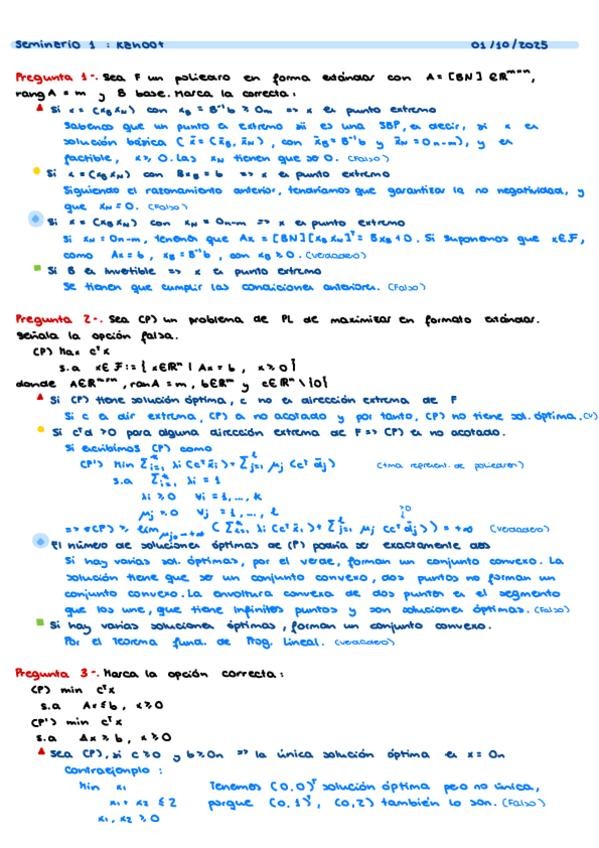 Seminario 1 : Kahoot 01/10/2025
Pregunta 1-. Sea F un poliedro en forma estándar con A = [BN] ∈ R^mxn,
rang A = m y B base. Marca la correcta:
Si x = (x_B x_N) con x_B = B⁻¹b ≥ 0m => x es punto extremo
Sabemos que un punto es extremo sii es una SBF, es decir, si x es
solución básica (x̄ = (x̄_B, x̄_N), con x̄_B = B⁻¹b y x̄_N = 0n-m), y es
factible, x ≥ 0. Las x_N tienen que ser 0. (Falso)
Si x = (x_B x_N) con Bx_B = b => x es punto extremo
Siguiendo el razonamiento anterior, tendríamos que garantizar la no negatividad, y
que x_N = 0. (Falso)
Si x = (x_B x_N) con x_N = 0n-m => x es punto extremo
Si x_N = 0n-m, tenemos que Ax = [BN][x_B x_N]ᵀ = Bx_B + 0. Si suponemos que x∈F,
como Ax = b, x_B = B⁻¹b, con x_B ≥ 0. (Verdadero)
Si B es invertible => x es punto extremo
Se tienen que cumplir las condiciones anteriores. (Falso)
Pregunta 2-. Sea (P) un problema de PL de maximizar en formato estándar.
Señala la opción falsa.
(P) Max cᵀx
s.a x∈F := { x∈Rⁿ | Ax = b, x ≥ 0}
donde A∈R^mxn, ran A = m, b∈Rᵐ y c∈Rⁿ \ {0}
Si (P) tiene solución óptima, c no es dirección extrema de F
Si c es dir extrema, (P) es no acotado y por tanto, (P) no tiene sol. óptima. (V)
Si cᵀd > 0 para alguna dirección extrema de F => (P) es no acotado.
Si escribimos (P) como
(P') Min Σᵢ₌₁ᵏ λi (cᵀx̄i) + Σⱼ₌₁ˡ μj (cᵀd̄j) (tma represent. de poliedros)
s.a Σᵢ₌₁ᵏ λi = 1
λi ≥ 0 ∀i = 1, ..., k
μj ≥ 0 ∀j = 1, ..., l
>0
=> v(P) ≥ lim μj₀→+∞ (Σᵢ₌₁ᵏ λi (cᵀx̄i) + Σⱼ₌₁ˡ μj (cᵀd̄j)) = +∞ (Verdadero)
El número de soluciones óptimas de (P) podría ser exactamente dos
Si hay varias sol. óptimas, por el verde, forman un conjunto convexo. La
solución tiene que ser un conjunto convexo, dos puntos no forman un
conjunto convexo. La envoltura convexa de dos puntos es el segmento
que los une, que tiene infinitos puntos y son soluciones óptimas. (Falso)
Si hay varias soluciones óptimas, forman un conjunto convexo.
Por el Teorema fund. de Prog. Lineal. (Verdadero)
Pregunta 3-. Marca la opción correcta:
(P) min cᵀx
s.a Ax ≤ b, x ≥ 0
(P') min cᵀx
s.a Ax ≥ b, x ≥ 0
Sea (P), si c ≥ 0 y b ≥ 0n => la única solución óptima es x = 0n
Contraejemplo:
Min x₁ Tenemos (0,0)ᵀ solución óptima pero no única,
x₁ + x₂ ≤ 2 porque (0,1)ᵀ, (0,2) también lo son. (Falso)
x₁, x₂ ≥ 0